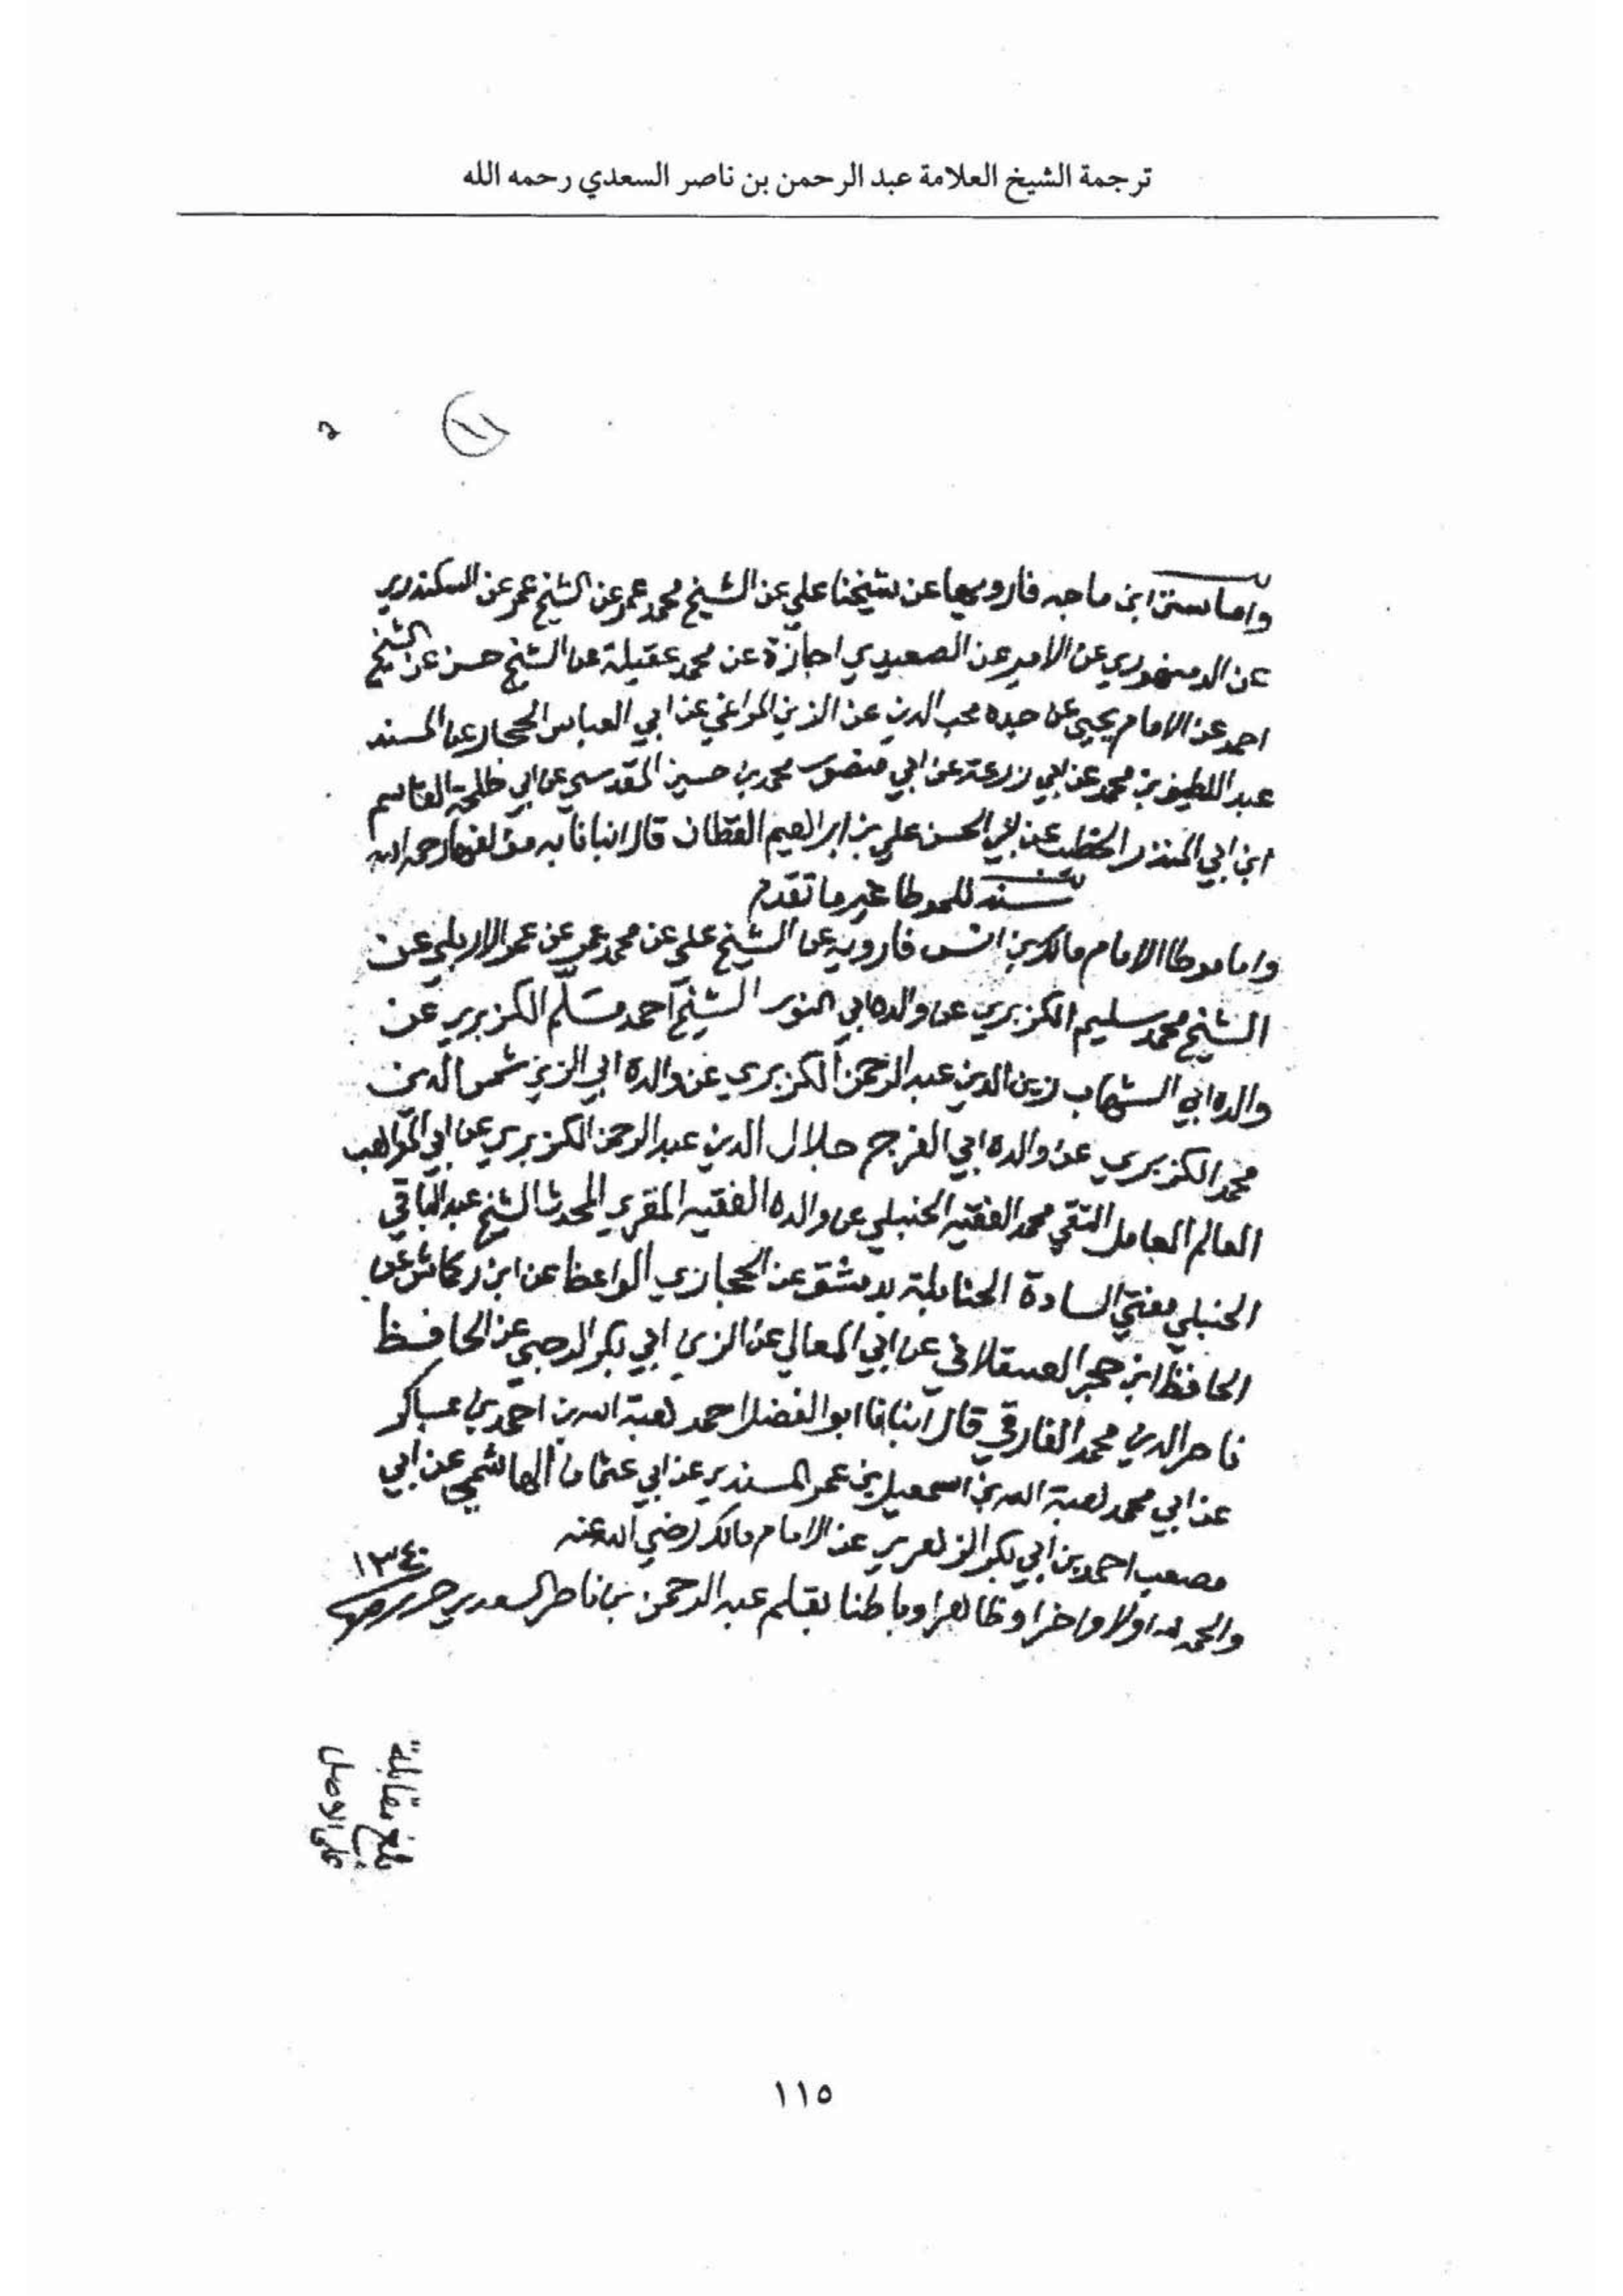 ترجمة الشيخ العلامة عبد الرحمن بن ناصر السعدي رحمه الله
١١
واما سنن ابن ماجه فارويها عن شيخنا علي عن الشيخ محمد عمر عن الشيخ عمر عن السكندري
عن الدمنهوري عن الامير عن الصعيدي اجازة عن محمد عقيلة عن الشيخ حسن عن الشيخ
احمد عن الامام يحيى عن جده محب الدين عن الزين المراغي عن ابي العباس الحجار عن المسند
عبد اللطيف بن محمد عن ابي زرعة عن ابي منصور محمد بن حسين المقدسي عن ابي طلحة القاسم
ابن ابي المنذر الخطيب عن ابي الحسن علي بن ابراهيم القطان قال انبانا به مؤلفها رحمه الله
سند للموطا غير ما تقدم
واما موطا الامام مالك بن انس فارويه عن الشيخ علي عن محمد عمر عن عمر الاربلي عن
الشيخ محمد سليم الكزبري عن والده ابي النور الشيخ احمد مسلم الكزبري عن
والده ابي الشهاب زين الدين عبد الرحمن الكزبري عن والده ابي الزين شمس الدين
محمد الكزبري عن والده ابي الفرج جلال الدين عبد الرحمن الكزبري عن ابي المواهب
العالم العامل التقي محمد الفقيه الحنبلي عن والده الفقيه المقري المحدث الشيخ عبد الباقي
الحنبلي مفتي السادة الحنابلة بدمشق عن الحجازي الواعظ عن ابن ركماش عن
الحافظ ابن حجر العسقلاني عن ابي المعالي عن الزين ابي بكر الرحبي عن الحافظ
ناصر الدين محمد الفارقي قال انبانا ابو الفضل احمد هبة الله بن احمد بن عساكر
عن ابي محمد هبة الله بن اسمعيل بن عمر المسندي عن ابي عثمان الهاشمي عن ابي
مصعب احمد بن ابي بكر الزهري عن الامام مالك رضي الله عنه
والحمد لله اولا واخرا وظاهرا وباطنا بقلم عبد الرحمن بن ناصر السعدي حرر ١٣٤٠
بلغ مقابلة
على الاصل
١١٥